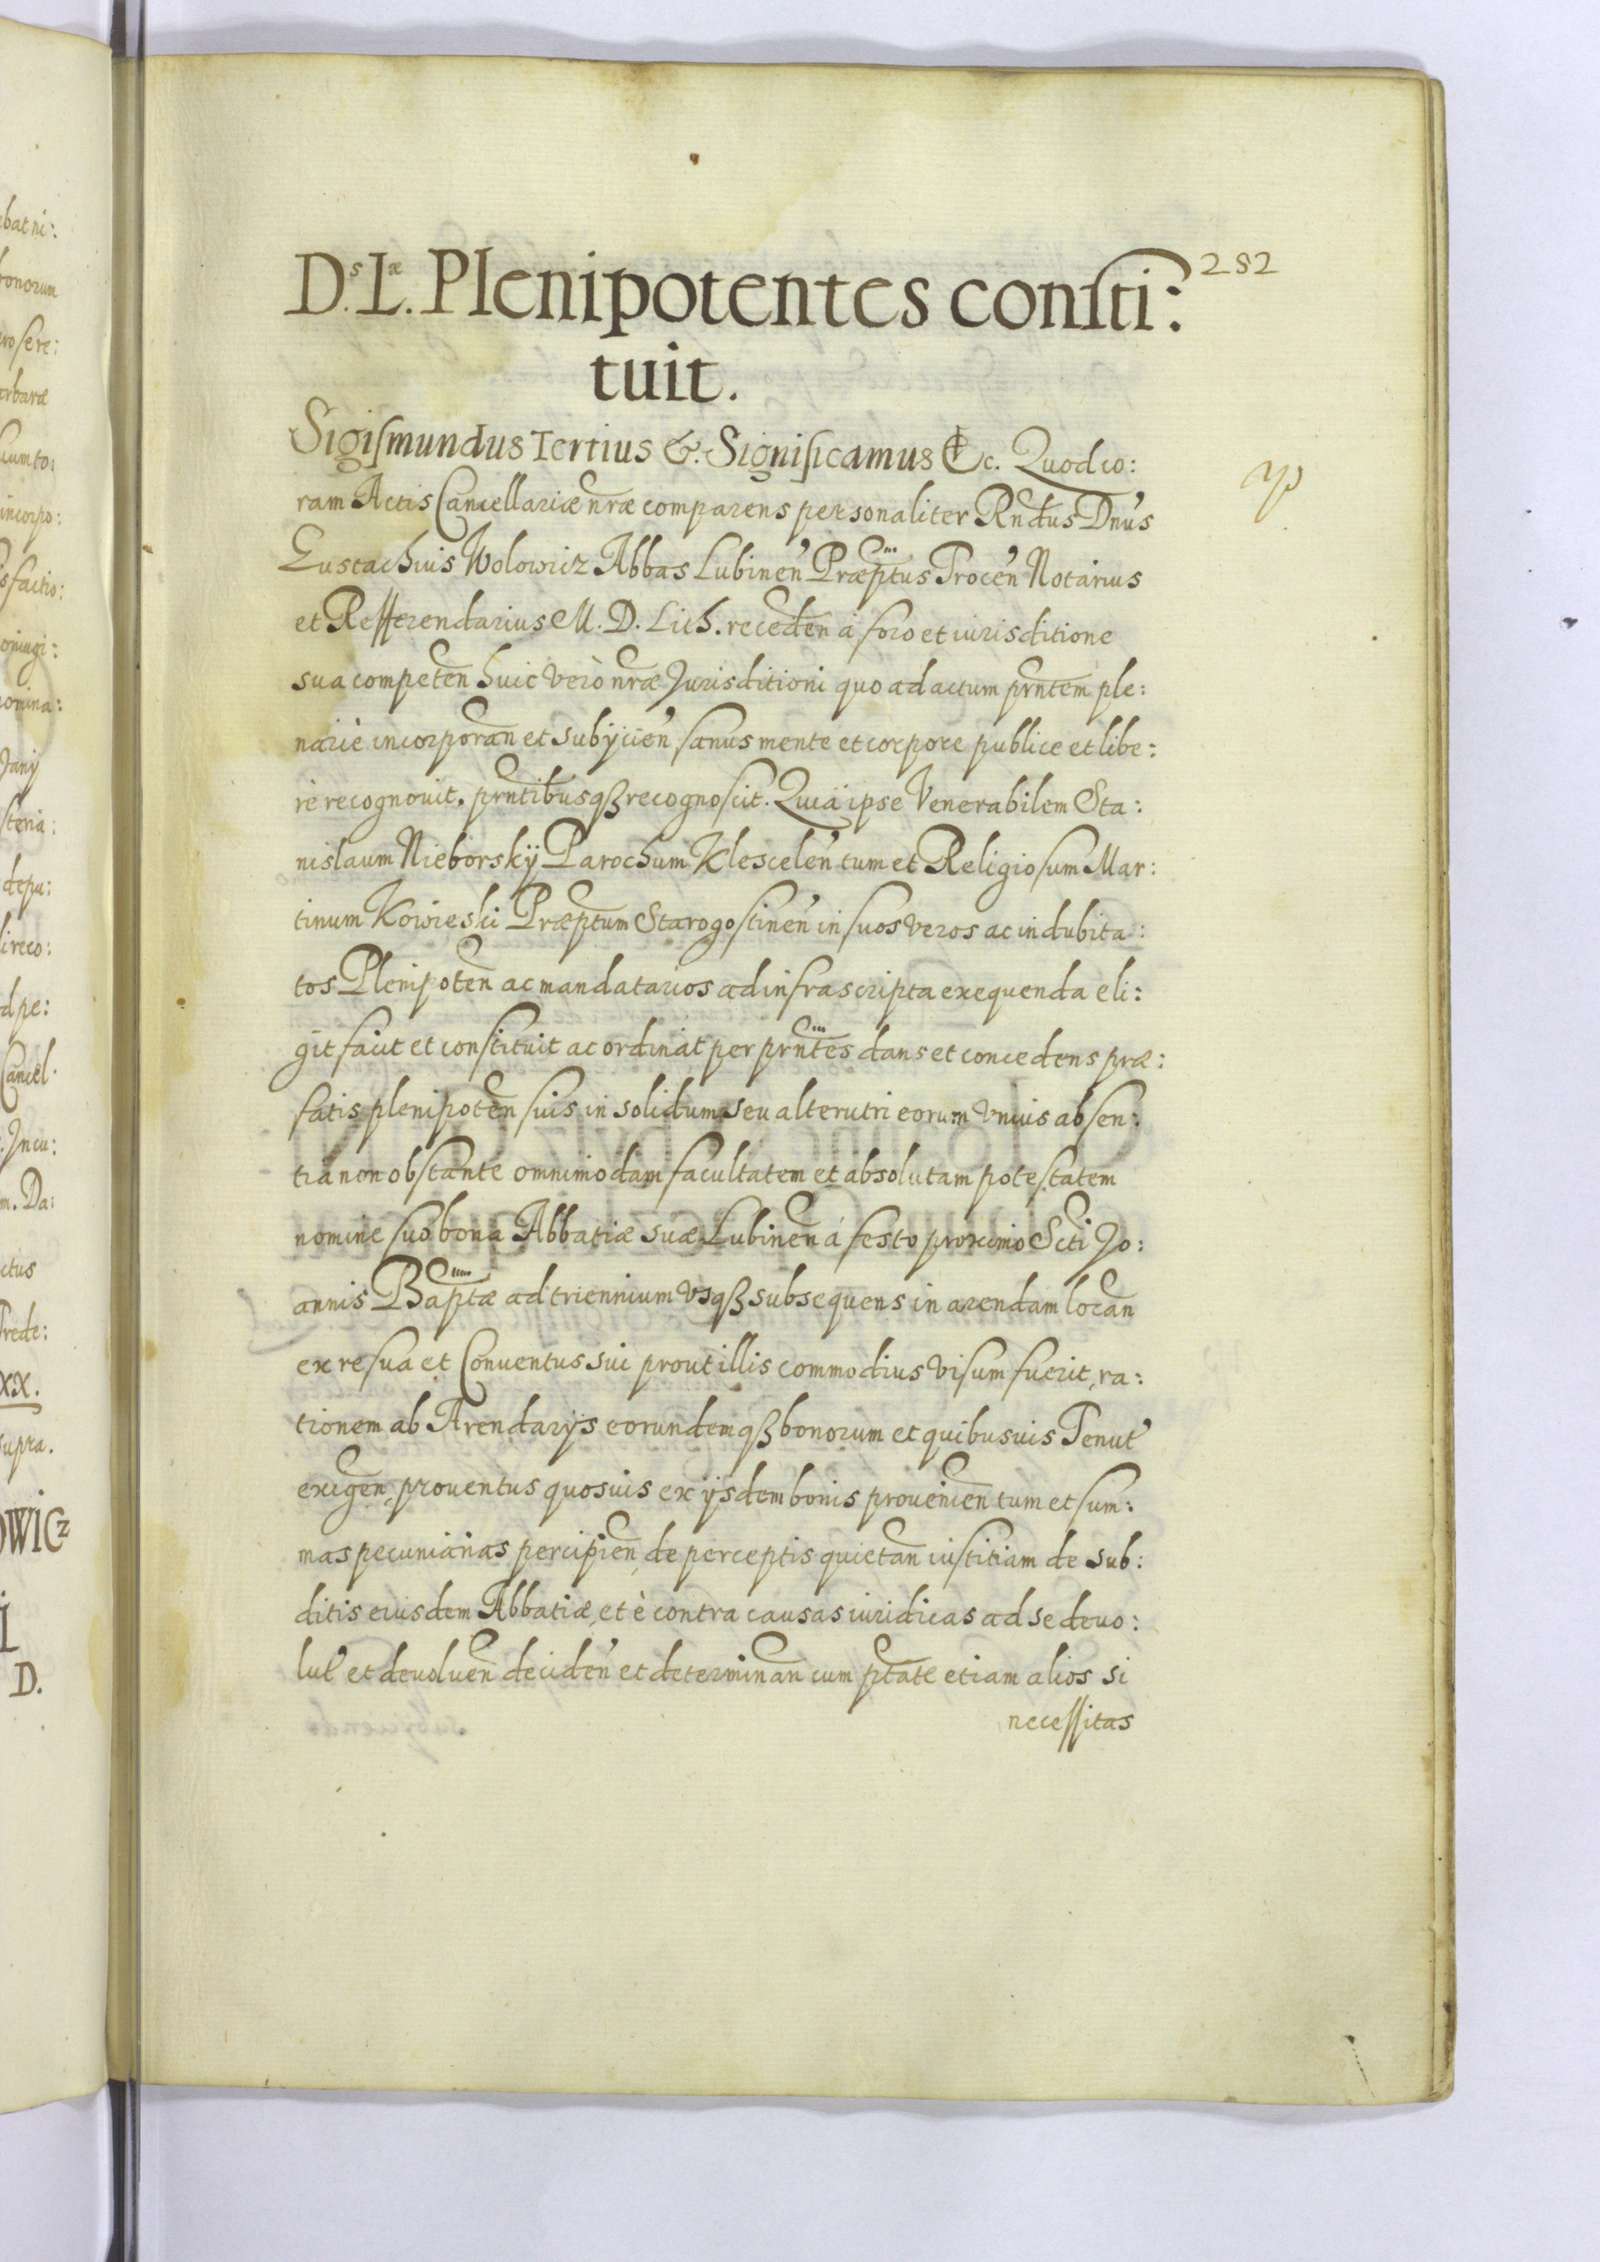 282
D.s L.æ Plenipotentes consti:
tuit.
Sigismundus Tertius &. Significamus Etc. Quod co:
ram Actis Cancellariæ nræ comparens personaliter Rndus Dnus
Eustachius Wolowicz Abbas Lubinen Præptus Trocen Notarius
et Refferendarius M. D. Lith. receden à foro et iurisditione
sua competen huic verò nræ Jurisditioni quo ad actum prntem ple:
nariè incorporan et subÿcien, sanus mente et corpore publice et libe:
rè recognouit. prntibusqß recognoscit. Quia ipse Venerabilem Sta:
nislaum Nieborskÿ Parochum Klescelen tum et Religiosum Mar:
tinum Kowieski Præptum Starogostinen in suos veros ac indubita:
tos Plenipoten ac mandatarios ad infrascripta exequenda eli:
git facit et constituit ac ordinat per prntes dans et concedens præ:
fatis plenipoten suis in solidum seu alterutri eorum vnius absen:
tia non obstante omnimodam facultatem et absolutam potestatem
nomine suo bona Abbatiæ suæ Lubinen à festo proximo Scti Jo:
annis Baptæ ad triennium vsqß subsequens in arendam locan
ex re sua et Conuentus sui prout illis commodius visum fuerit, ra:
tionem ab Arendarÿs eorundemqß bonorum et quibusuis Tenut
exigen, prouentus quosuis ex ÿsdem bonis prouenien tum et sum:
mas pecuniarias percipien, de perceptis quietan iustitiam de sub:
ditis eiusdem Abbatiæ, et è contra causas iuridicas ad se deuo:
lut et deuoluen deciden et determinan cum ptate etiam alios si
necessitas